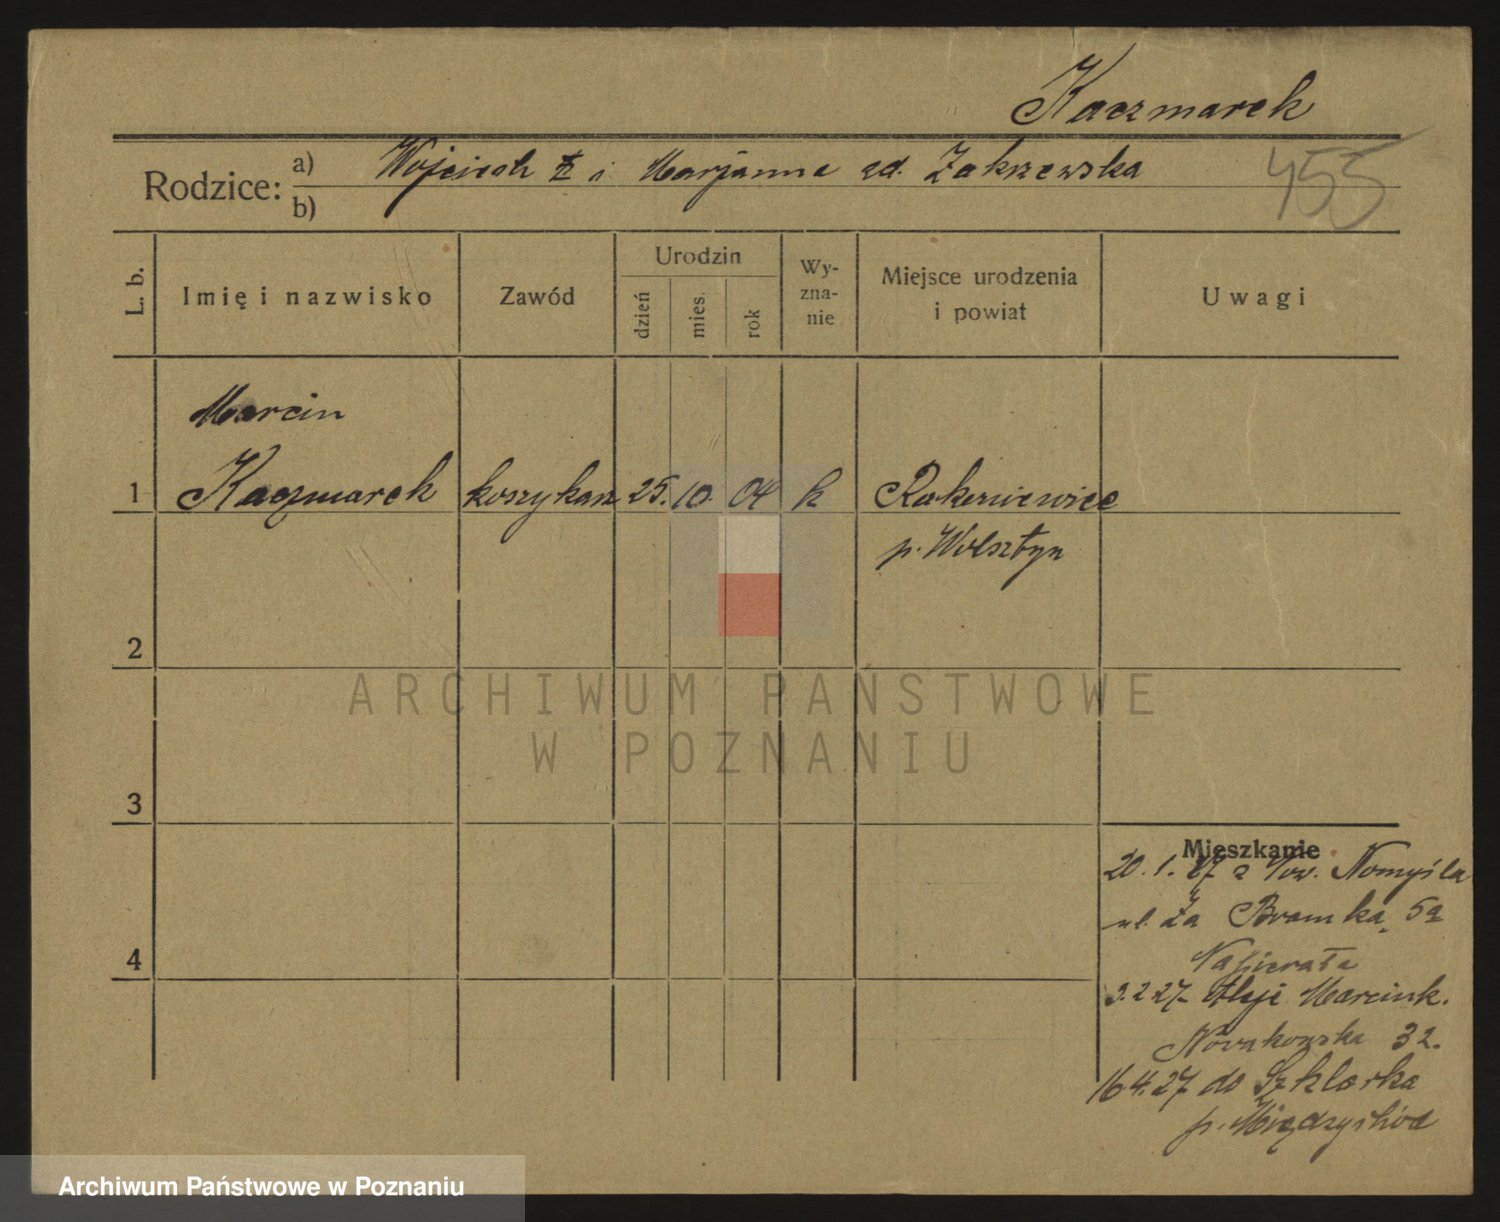 Kaczmarek
455
Rodzice: a) Wojciech i Marjanna zd. Zakrzewska
b)
L. b. Imię i nazwisko Zawód Urodzin dzień mies. rok Wy-zna-nie Miejsce urodzenia i powiat Uwagi
Marcin
1 Kaczmarek koszykarz 25. 10. 04 k Rakoniewice
p. Wolsztyn
2
ARCHIWUM PAŃSTWOWE
W POZNANIU
3
Mieszkanie
20. 1. 27 z Now. Nomyśla
ul. Za Bramką 5a
4
Napierała
3.2 27 Aleje Marcink.
Nowakowska 32.
16.4.27 do Szklarka
p. Międzychód
Archiwum Państwowe w Poznaniu